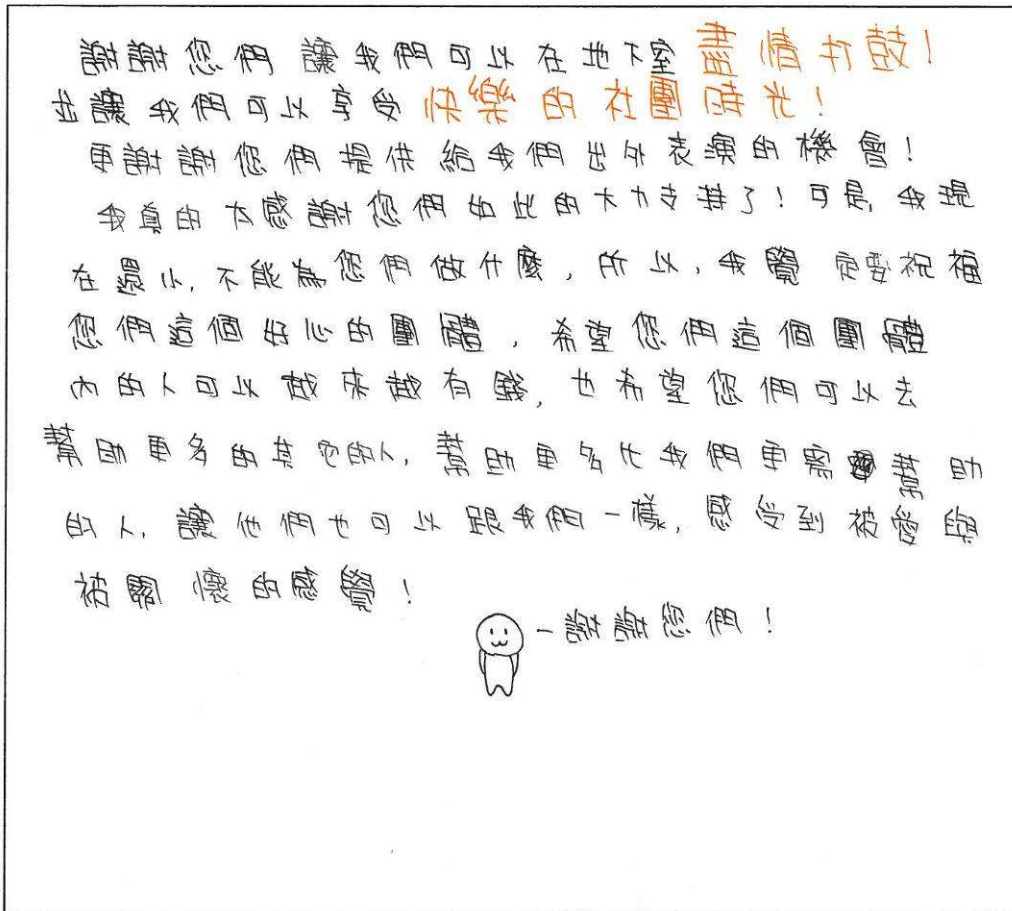 謝謝您們讓我們可以在地下室盡情打鼓!
並讓我們可以享受快樂的社團時光!
更謝謝您們提供給我們出外表演的機會!
我真的太感謝您們如此的大力支持了!可是,我現
在還小,不能為您們做什麼,所以,我覺定要祝福
您們這個好心的團體,希望您們這個團體
內的人可以越來越有錢,也希望您們可以去
幫助更多的其它的人,幫助更多比我們更需要幫助
的人,讓他們也可以跟我們一樣,感受到被愛與
被關懷的感覺!
-謝謝您們!